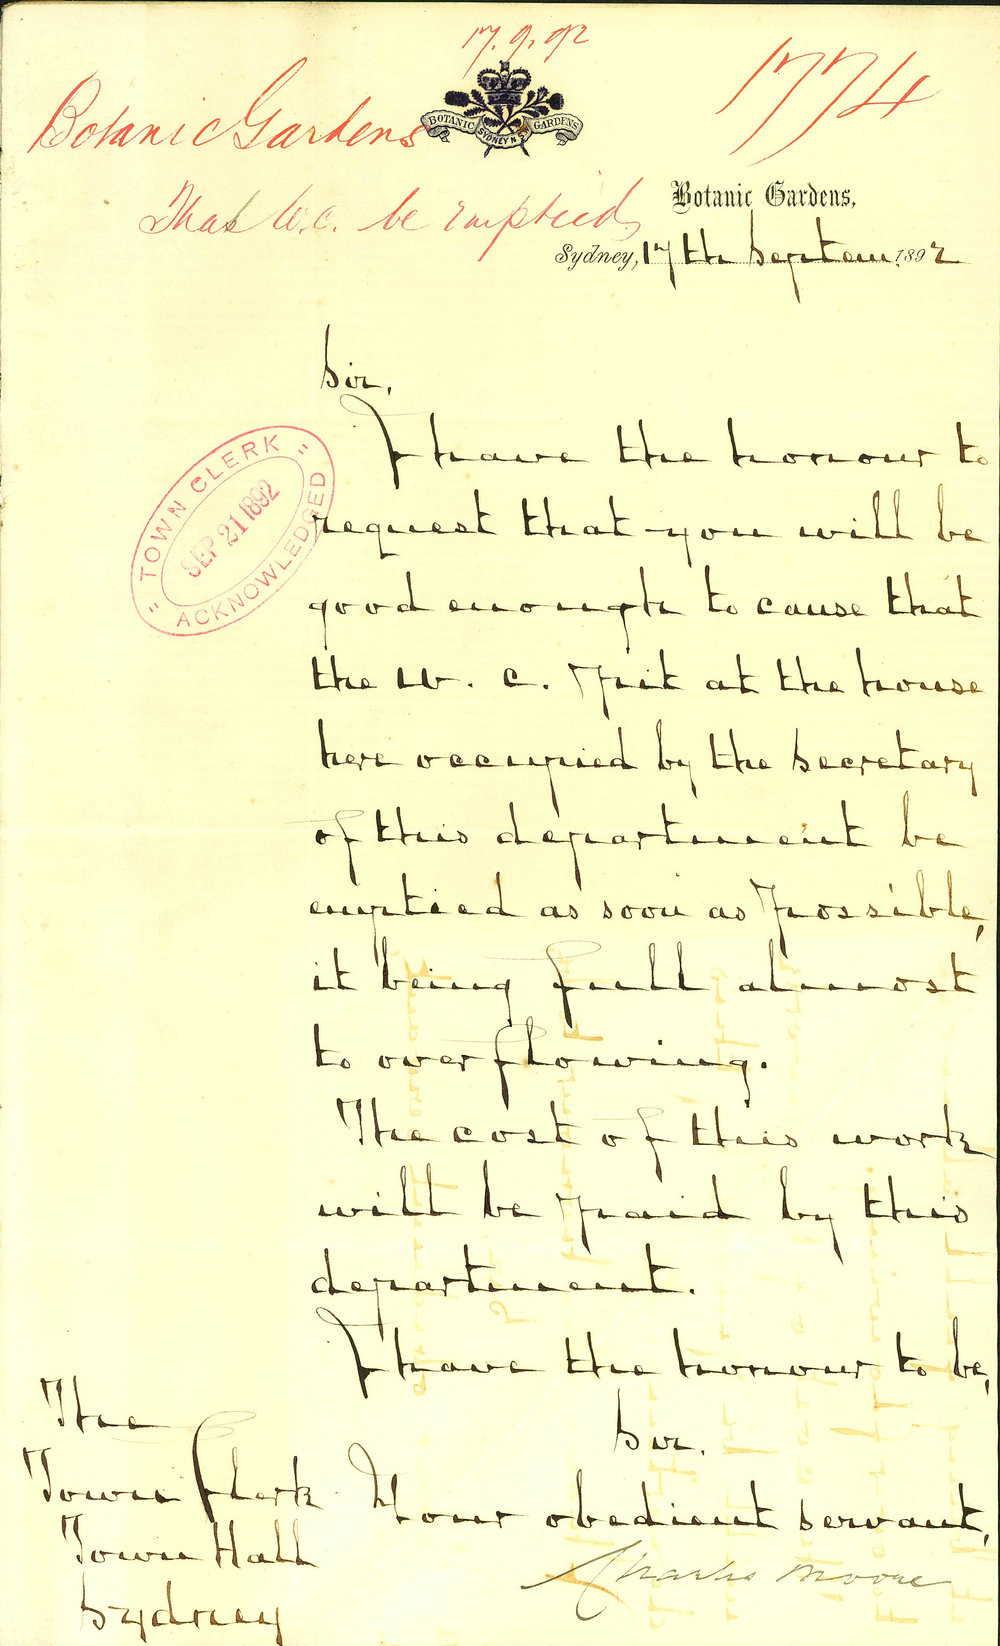 17.9.92
1774
Botanic Gardens
BOTANIC GARDENS
SYDNEY N.S.
That W.C. be emptied
Botanic Gardens,
Sydney, 17th Septem. 1892
Sir,
I have the honour to
request that you will be
good enough to cause that
the W. C. Pit at the house
here occupied by the Secretary
of this department be
emptied as soon as possible,
it being full almost
to overflowing.
The cost of this work
will be paid by this
department.
I have the honour to be,
Sir.
Your obedient servant,
Charles Moore
The
Town Clerk
Town Hall
Sydney
"TOWN CLERK"
SEP 21 1892
ACKNOWLEDGED